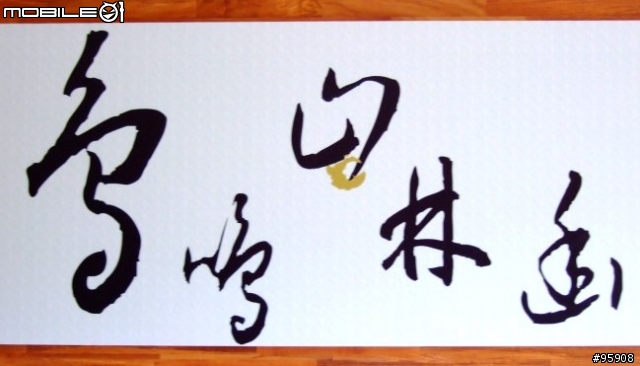 MOBILE01
鳥鳴山林幽
#95908